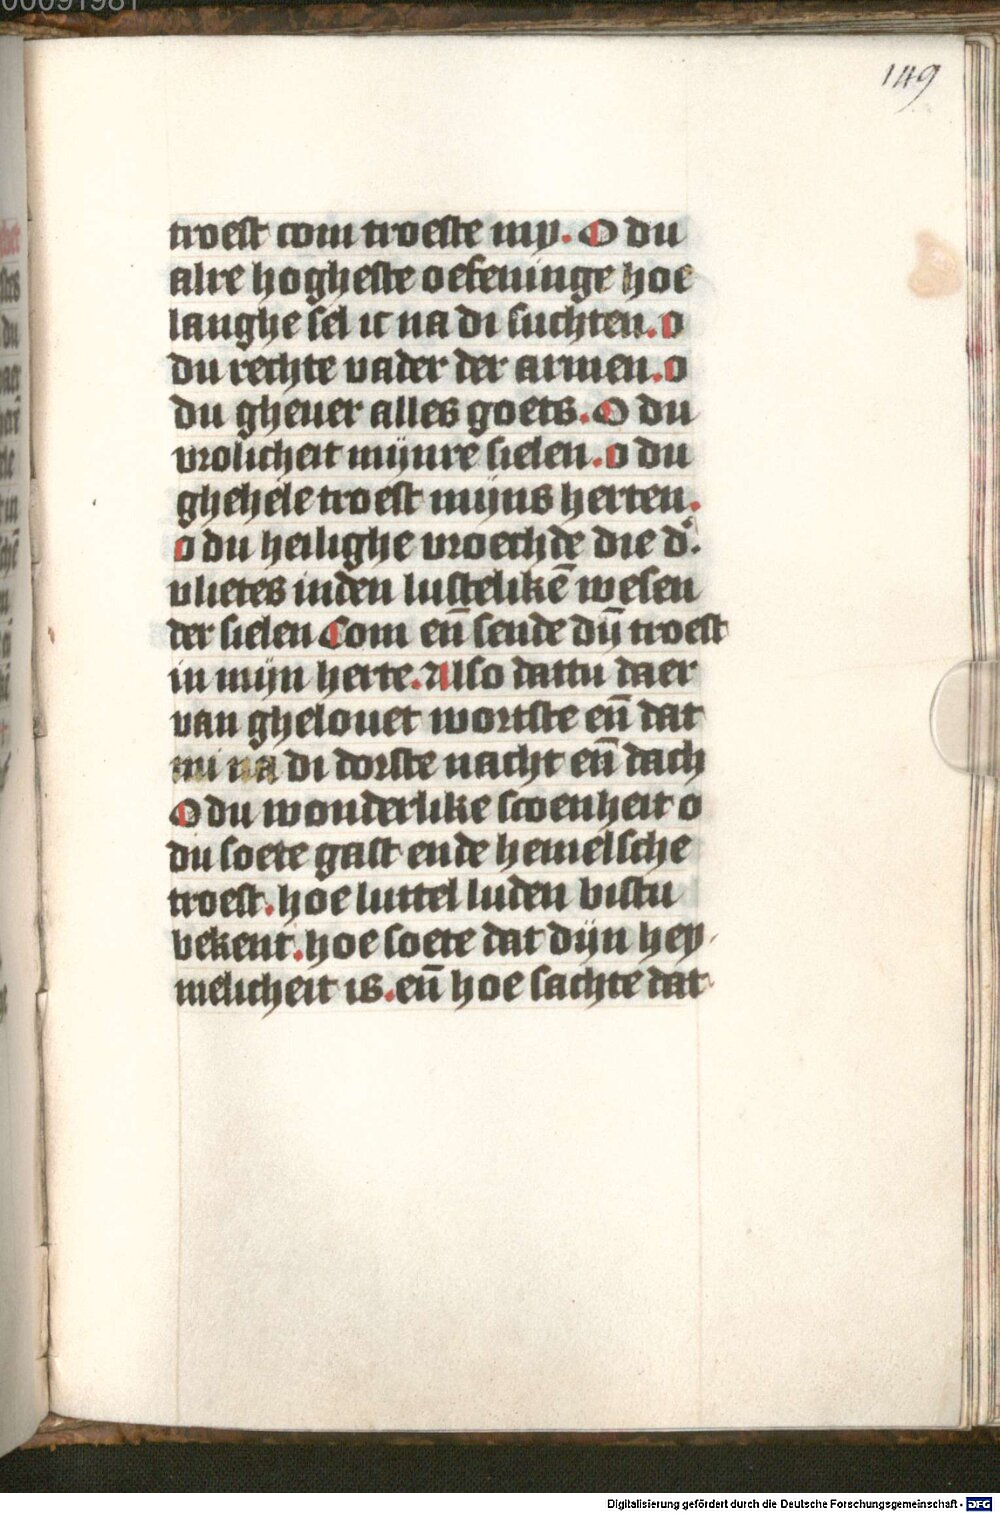 00091981
149
troest com troeste my. O du
alre hogheste oefeninge hoe
langhe sel ic na di suchten. o
du rechte vader der armen. o
du gheuer alles goets. O du
vrolicheit mijnre sielen. o du
ghehele troest mijns herten.
o du heilighe vroechde die d᷎
vlietes inden lustelikē wesen
der sielen Com eñ sende dÿ troest
in mijn herte. Also dattu daer
van ghelouet wortste eñ dat
mi na di dorste nacht eñ dach
O du wonderlike scoenheit o
du soete gast ende hemelsche
troest. hoe luttel luden bistu
bekent. hoe soete dat dijn hey
melicheit is. eñ hoe sachte dat
Digitalisierung gefördert durch die Deutsche Forschungsgemeinschaft - DFG